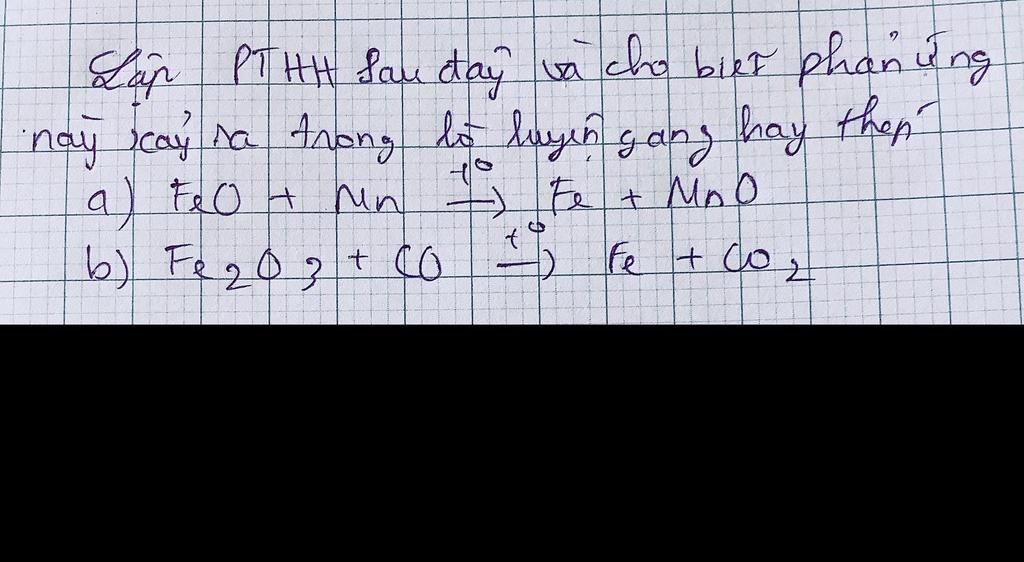 Lập PTHH sau đây và cho biết phản ứng
này xảy ra trong lò luyện gang hay thép
a) FeO + Mn t° → Fe + MnO
b) Fe2O3 + CO t° → Fe + CO2